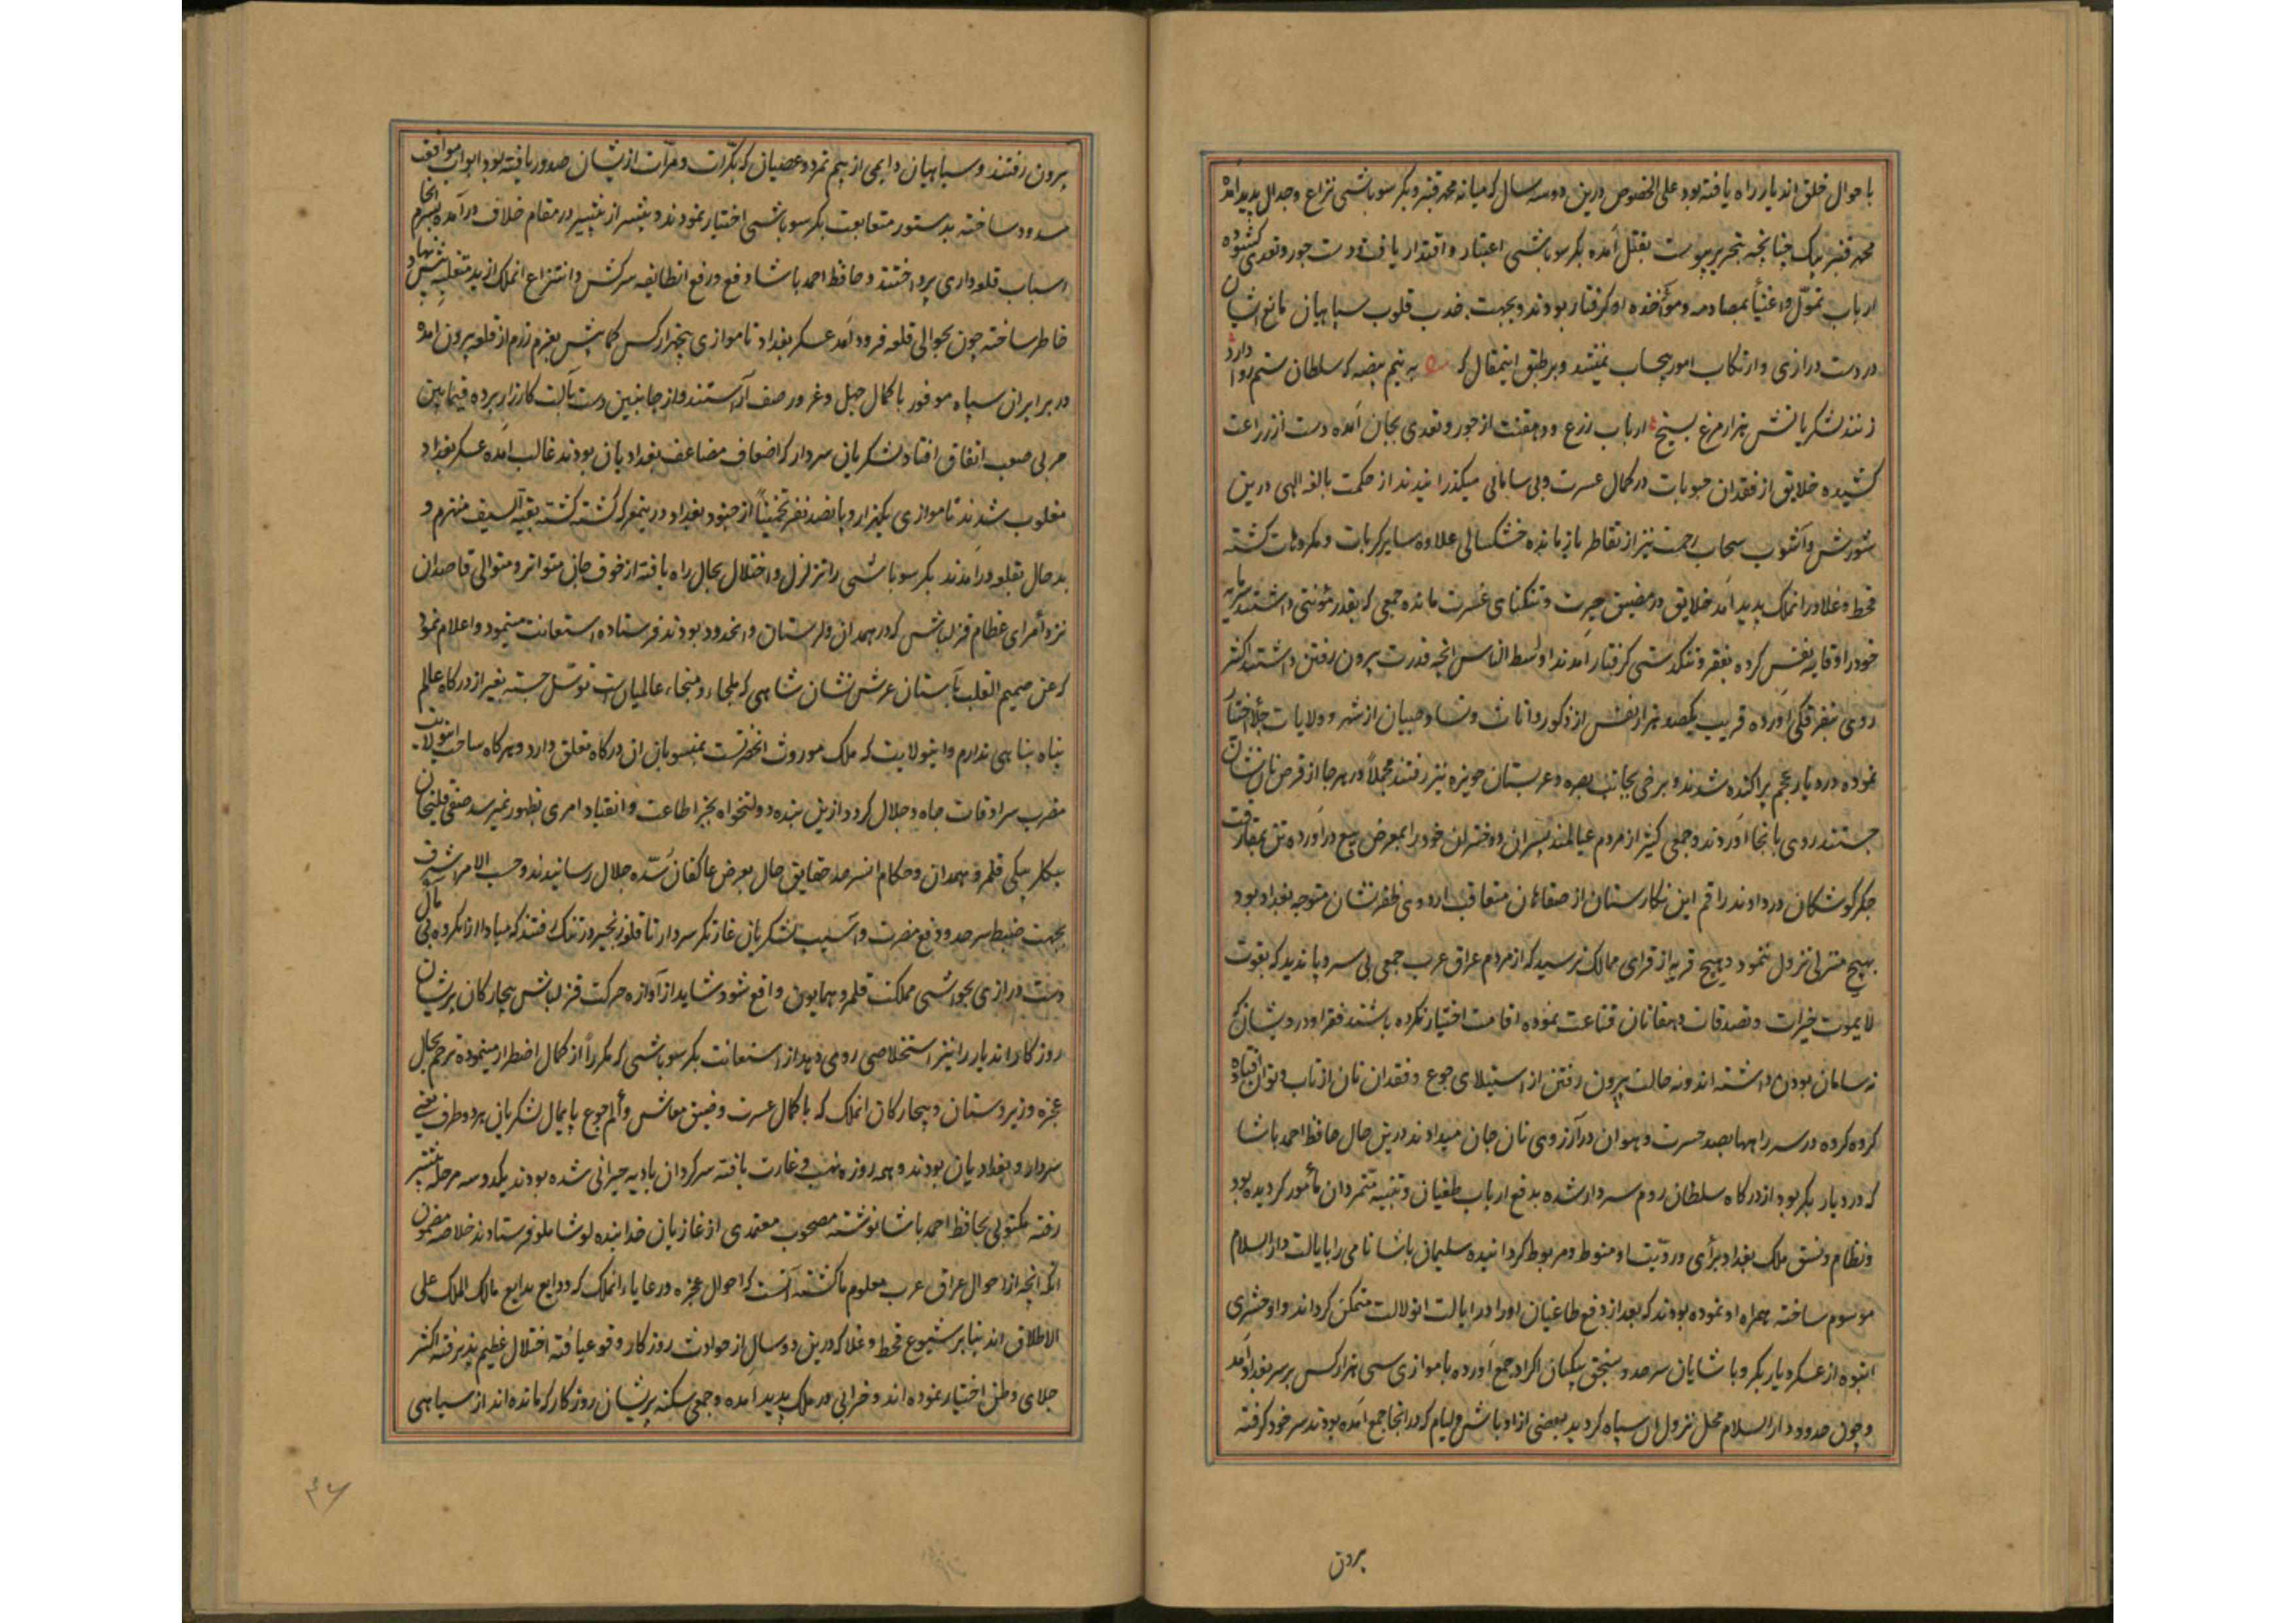 باحوال خلق اندیار راه یافته بود علی الخصوص درین دو سه سال که میانه محمد قنبر و بکر سوباشی نزاع و جدال پدید آمد
محمد قنبر بیک چنانچه بتحریر پیوست بقتل آمده بکر سوباشی اعتبار و اقتدار یافت و دست جور و تعدی کشوده
ارباب تموّل و اغنیا بمصادره و مؤاخذه او گرفتار بودند و بجهت جذب قلوب سپاهیان مانع ایشان
در دست درازی و ارتکاب امور بیحساب نمیشد و برطبق اینمقال که به نیم بیضه که سلطان ستم روا دارد
زنند لشکریانش هزار مرغ بسیخ ارباب زرع و دهقنت از جور و تعدی بجان آمده دست از زراعت
کشیده خلایق از فقدان حبوبات در کمال عسرت و بی سامانی میگذرانیدند از حکمت بالغه الهی درین
شورش و آشوب سحاب رحمت نیز از تقاطر باز مانده خشکسالی علاوه سایر کربات و مکروهات گشته
قحط و غلا در انملک پدید آمد خلایق در مضیق حیرت و تنگنای عسرت مانده جمعی که بقدر مؤنتی داشتند سرمایه
خود را وقایه نفس کرده بفقر و تنگدستی گرفتار آمدند اوسط الناس انچه قدرت بیرون رفتن داشتند اکثر
روی بتفرقگی آورده قریب یکصد هزار نفس از ذکور و اناث و نسا و صبیان از شهر و ولایات جلا اختیار
نموده در دیار عجم پراکنده شدند و برخی بجانب بصره و عربستان حویزه نیز رفتند مجملاً در هر جا از قرص نان نشان
جستند روی بانجا آوردند و جمعی کثیر از مردم عیالمند پسران و دختران خود را بمعرض بیع درآورده تن بمفارقت
جگر گوشگان در دادند راقم این نگارستان از صفاهان متعاقب اردوی ظفرنشان متوجه بغداد بود
بهیچ منزلی نزول ننمود و بهیچ قریه از قرای ممالک نرسید که از مردم عراق عرب جمعی بی سر و پا ندید که بقوت
لا یموت خیرات و تصدقات دهقانان قناعت نموده اقامت اختیار نکرده باشند فقرا و درویشان که
نه سامان بودن داشته اند و نه حالت بیرون رفتن از استیلای جوع و فقدان نان از تاب و توان افتاده
گروه گروه در سر راهها بصد حسرت و هوان در آرزوی نان جان میدادند درین حال حافظ احمد باشا
که در دیار بکر بود از درگاه سلطان روم سردار شده بدفع ارباب طغیان و تنبیه متمردان مأمور گردیده بود
و نظام و نسق ملک بغداد برأی و رویّت او منوط و مربوط گردانیده سلیمان باشا نامی را بایالت دار السلام
موسوم ساخته همراه او نموده بودند که بعد از دفع طاغیان او را در ایالت انولایت متمکن گرداند و او حشری
انبوه از عسکر دیار بکر و باشایان سرحد و سنجق بیکیان اکراد جمع آورده با موازی سی هزار کس بر سر بغداد آمد
و چون حدود دار السلام محل نزول ان سپاه گردید بعضی از اوباش و لیام که در انجا جمع آمده بودند سر خود گرفته
برون
بیرون رفتند و سپاهیان دایمی از بیم تمرد و عصیان که بکرّات و مرّات ازیشان صدور یافته بود ابواب موافقت
مسدود ساخته بدستور متابعت بکر سوباشی اختیار نمودند و بیشتر از پیشتر در مقام خلاف درآمده بسرانجام
اسباب قلعه داری پرداختند و حافظ احمد باشا دفع و رفع انطایفه سرکش و انتزاع انملک از ید متغلبه پیش نهاد
خاطر ساخته چون بحوالی قلعه فرود آمد عسکر بغداد تا موازی پنجهزار کس کمابیش بعزم رزم از قلعه بیرون آمده
در برابر ان سپاه موفور با کمال جهل و غرور صف آراستند و از جانبین دست بآلت کارزار برده فیمابین
حربی صعب اتفاق افتاد لشکریان سردار که اضعاف مضاعف بغدادیان بودند غالب آمده عسکر بغداد
مغلوب شدند تا موازی یکهزار و پانصد نفر تخمیناً از جنود بغداد در ینمعرکه کشته گشته بقیة السیف منهزم و
بدحال بقلعه درآمدند بکر سوباشی را تزلزل و اختلال بحال راه یافته از خوف جان متواتر و متوالی قاصدان
نزد أمرای عظام قزلباش که در همدان و لرستان و انحدود بودند فرستاده استعانت مینمود و اعلام نمود
که من صمیم القلب بآستان عرش نشان شاهی که ملجاء و منجاء عالمیان است توسّل جسته بغیر از درگاه عالم
پناه پناهی ندارم و اینولایت که ملک موروث انحضرتست بمنسوبان ان درگاه تعلق دارد و هرگاه ساحت انولایت
مضرب سرادقات جاه و جلال گردد ازین بنده دولتخواه بجز اطاعت و انقیاد امری بظهور نمیرسد صفی قلیخان
بیگلربیکی قلمرو همدان و حکام انسرحد حقایق حال بعرض عاکفان سدّه جلال رسانیدند و حسب الامر اشرف
بجهت ضبط سرحد و دفع مضرت و آسیب لشکریان غارتگر سردار تا قلوز نجیر و زرتنگ رفتند که مبادا ازانکروه بی مآل
دست درازی بحواشی مملکت قلمرو همایون واقع شود و شاید از آوازه حرکت قزلباش بیچارگان پریشان
روزگار اندیار را نیز استخلاصی روی دهد از استعانت بکر سوباشی که مکرراً از کمال اضطرار مینمود ترحم بحال
عجزه و زیردستان و بیچارگان انملک که با کمال عسرت و ضیق معاش و ألم جوع پایمال لشکریان هر دو طرف یعنی
سردار و بغدادیان بودند و همه روزه نهب و غارت یافته سرگردان بادیه حیرانی شده بودند یکدو سه مرحله پیشتر
رفته مکتوبی بحافظ احمد باشا نوشته مصحوب معتمدی از غازیان خدابنده لو شاملو فرستادند خلاصه مضمون
انکه انچه از احوال عراق عرب معلوم ما گشته آنست که احوال عجزه و رعایاء انملک که ودایع بدایع مالک الملک علی
الاطلاق اند بنابر شیوع قحط و غلا که درین دو سال از حوادث روزگار وقوع یافته اختلال عظیم پذیرفته اکثر
جلای وطن اختیار نموده اند و خرابی در ملک پدید آمده و جمعی سکنه پریشان روزگار که مانده اند از سپاهی